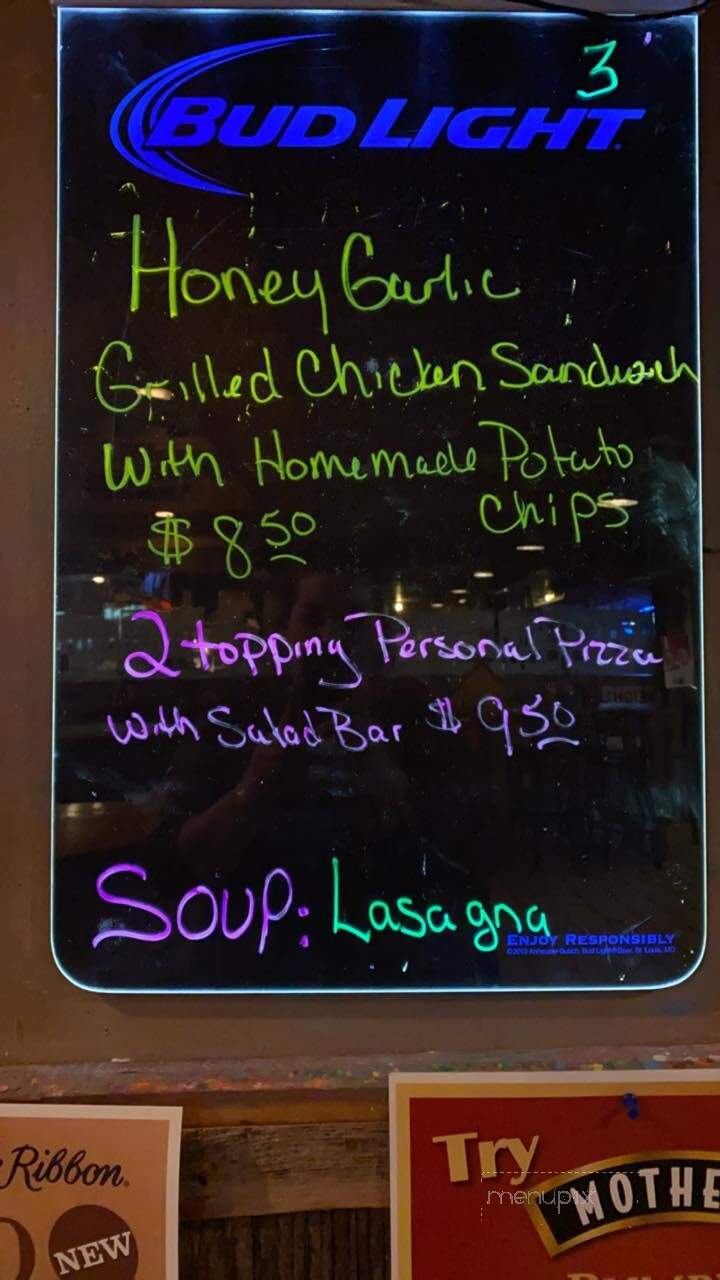 3
BUD LIGHT
Honey Garlic
Grilled Chicken Sandwich
With Homemade Potato
$8.50 Chips
2 topping Personal Pizza
with Salad Bar $9.50
Soup: Lasagna
ENJOY RESPONSIBLY
©2013 Anheuser-Busch, Bud Light® Beer, St. Louis, MO
Ribbon®
NEW
Try
menupix
MOTHE